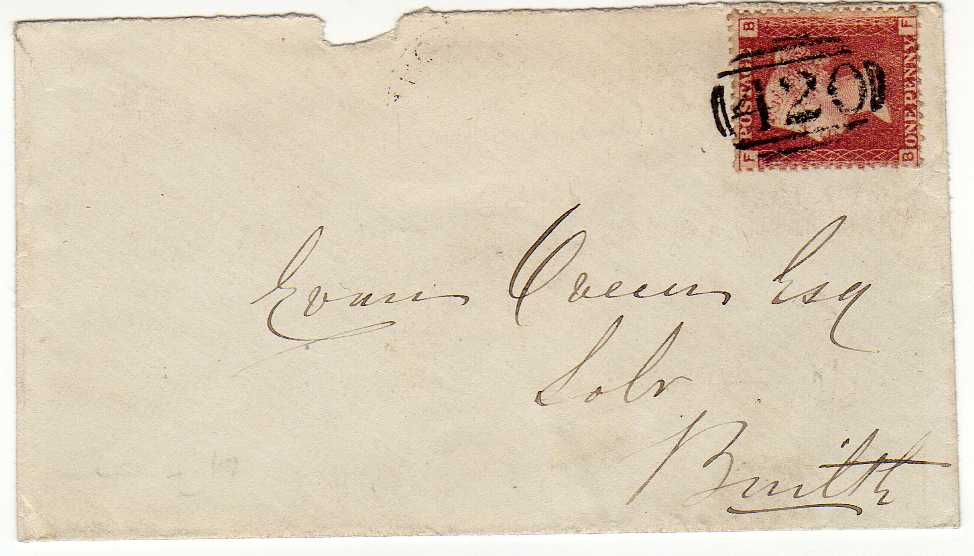 B F
POSTAGE
ONE PENNY
F B
120
Evan Owen Esq
Solr
Builth